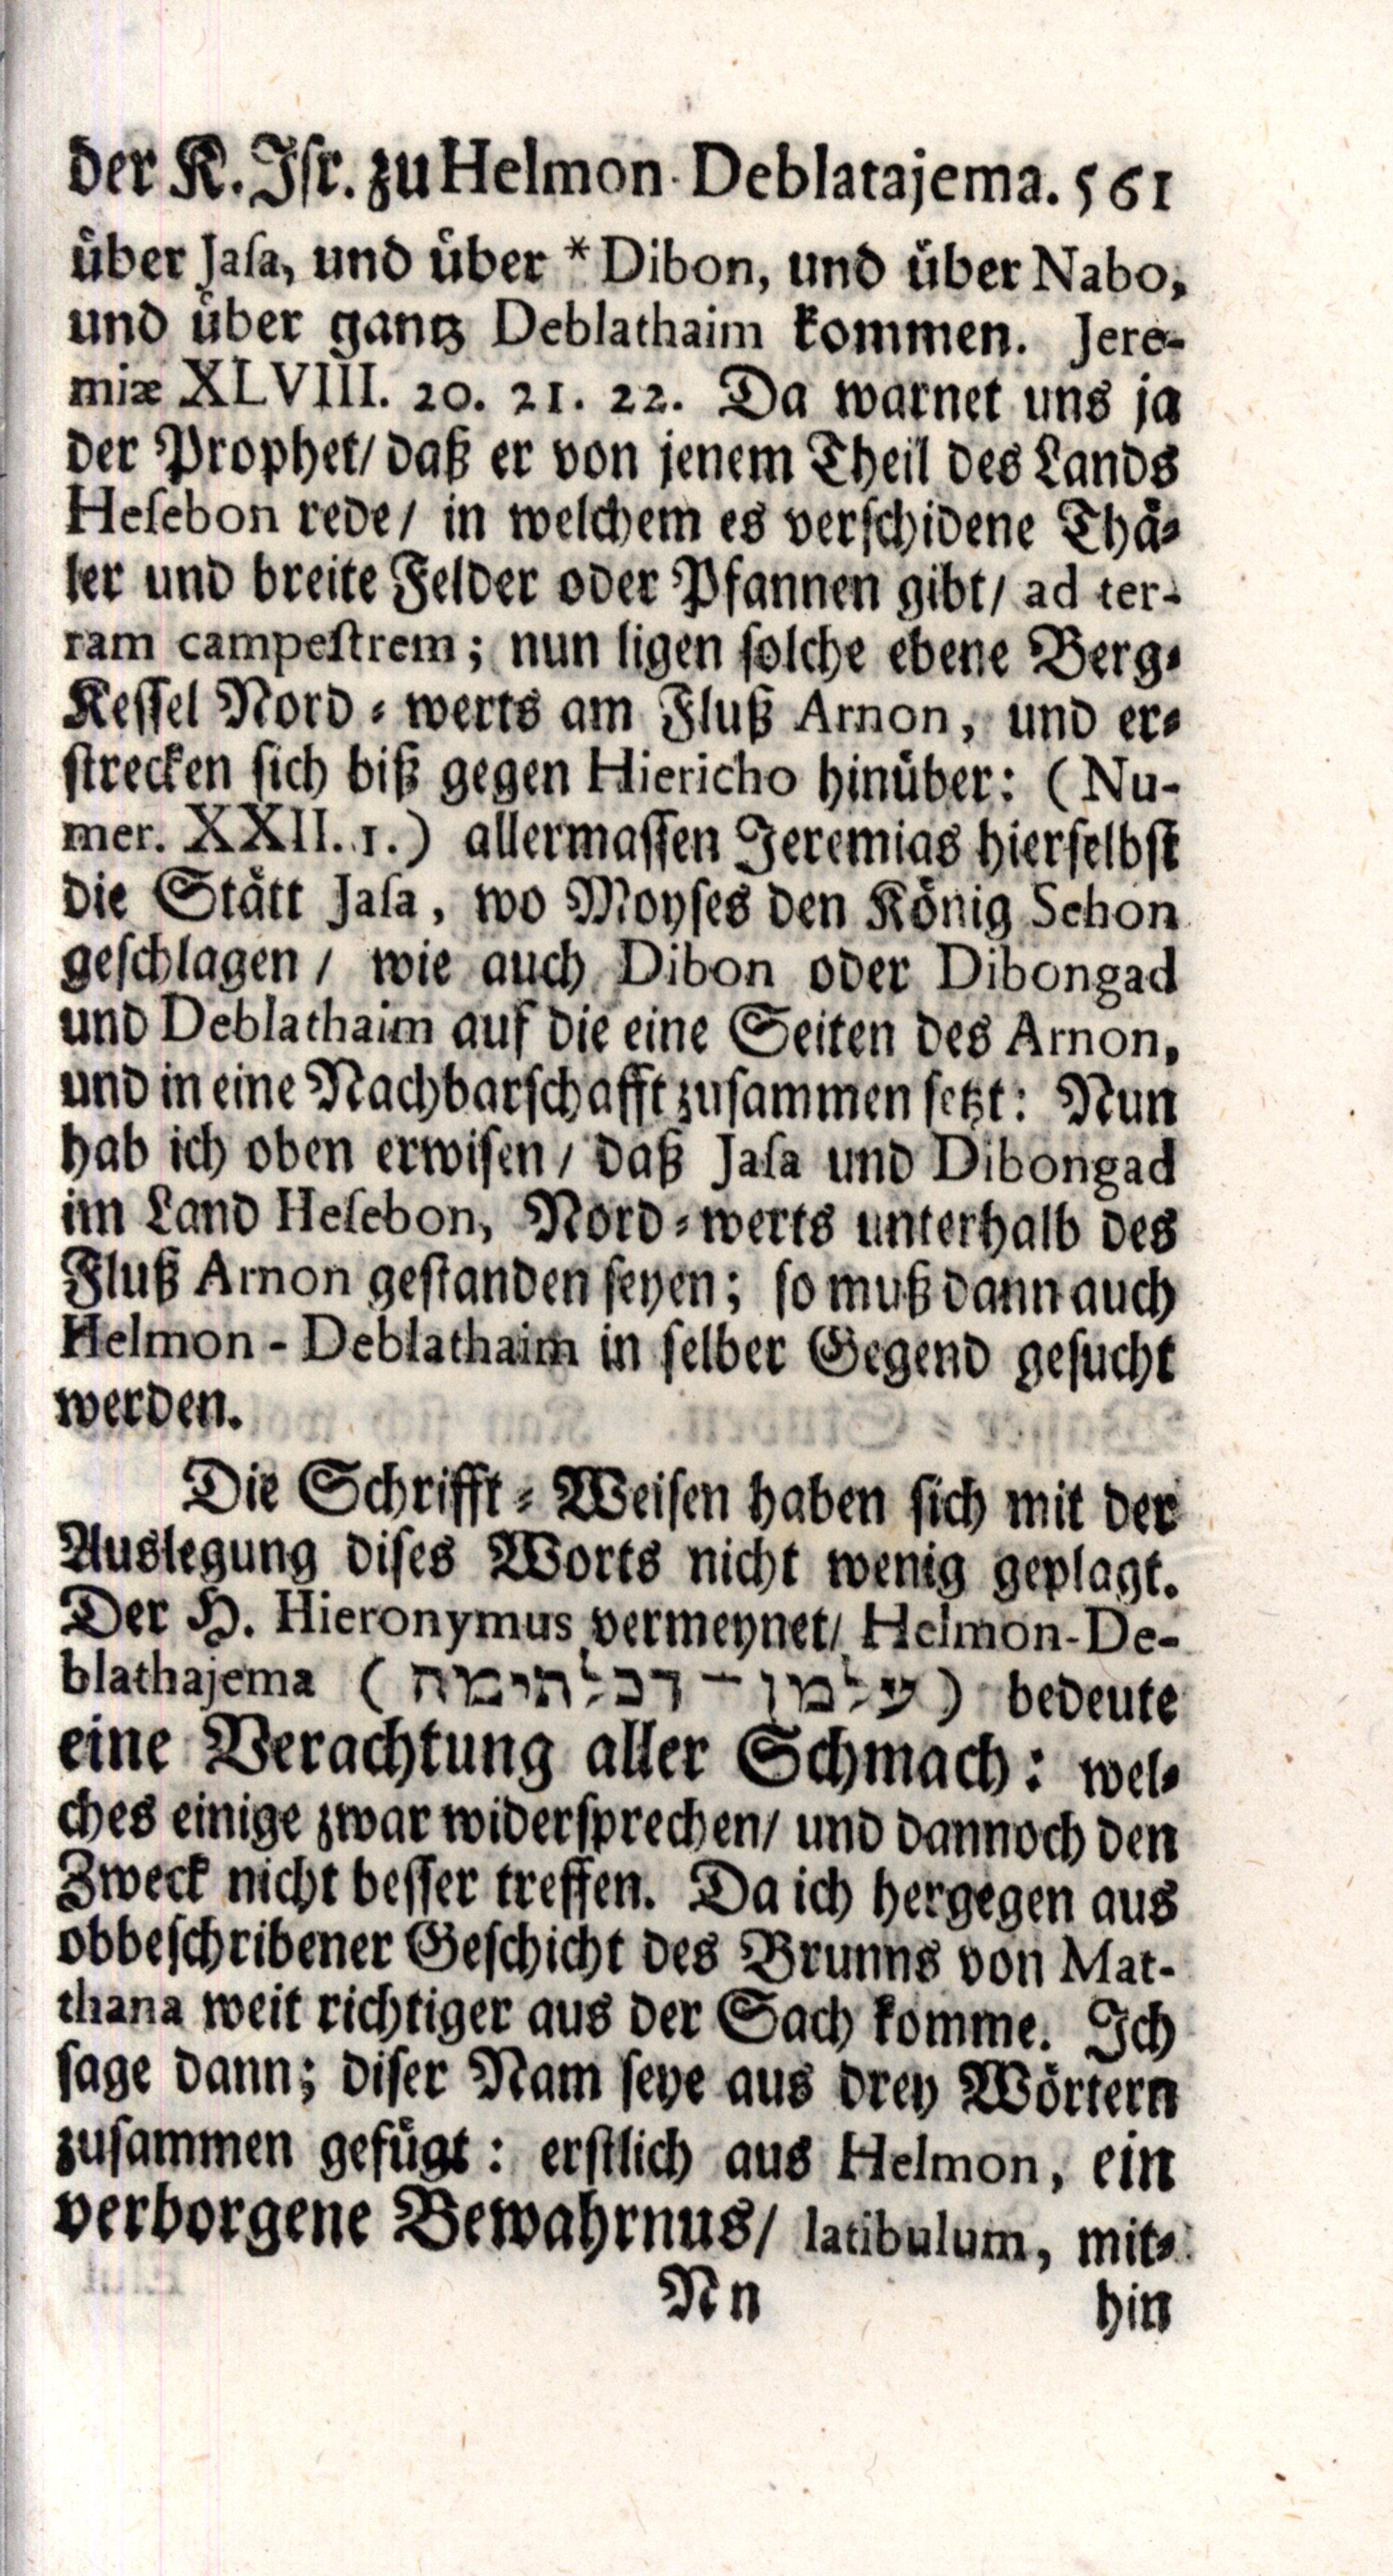 der K. Jſr. zu Helmon-Deblatajema. 561
über Jaſa, und über * Dibon, und über Nabo,
und über gantz Deblathaim kommen. Jere-
miæ XLVIII. 20. 21. 22. Da warnet uns ja
der Prophet/ daß er von jenem Theil des Lands
Heſebon rede/ in welchem es verſchidene Thä-
ler und breite Felder oder Pfannen gibt/ ad ter-
ram campeſtrem; nun ligen ſolche ebene Berg-
Keſſel Nord-werts am Fluß Arnon, und er-
ſtrecken ſich biß gegen Hiericho hinüber: (Nu-
mer. XXII. 1.) allermaſſen Jeremias hierſelbſt
die Stätt Jaſa, wo Moyſes den König Sehon
geſchlagen/ wie auch Dibon oder Dibongad
und Deblathaim auf die eine Seiten des Arnon,
und in eine Nachbarſchafft zuſammen ſetzt: Nun
hab ich oben erwiſen/ daß Jaſa und Dibongad
im Land Heſebon, Nord-werts unterhalb des
Fluß Arnon geſtanden ſeyen; ſo muß dann auch
Helmon-Deblathaim in ſelber Gegend geſucht
werden.
Die Schrifft-Weiſen haben ſich mit der
Auslegung diſes Worts nicht wenig geplagt.
Der H. Hieronymus vermeynet/ Helmon-De-
blathajema (עלמן־דבלתימה) bedeute
eine Verachtung aller Schmach: wel-
ches einige zwar widerſprechen/ und dannoch den
Zweck nicht beſſer treffen. Da ich hergegen aus
obbeſchribener Geſchicht des Brunns von Mat-
thana weit richtiger aus der Sach komme. Ich
ſage dann; diſer Nam ſeye aus drey Wörtern
zuſammen gefügt: erſtlich aus Helmon, ein
verborgene Bewahrnus/ latibulum, mit-
Nn hin